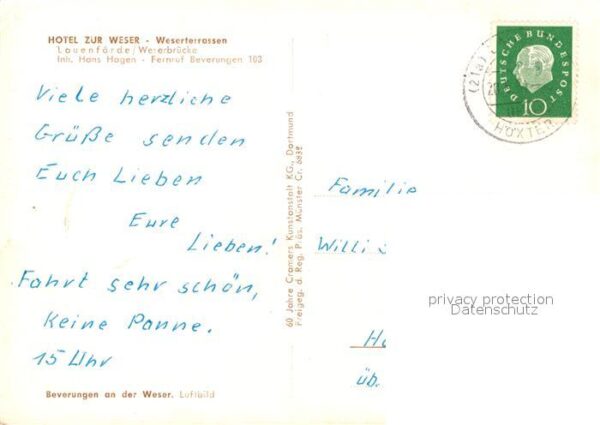 HOTEL ZUR WESER - Weserterrassen
Lauenförde/Weserbrücke
Inh. Hans Hagen - Fernruf Beverungen 103
Viele herzliche
Grüße senden
Euch Lieben
Eure
Lieben!
Fahrt sehr schön,
Keine Panne.
15 Uhr
Beverungen an der Weser. Luftbild
60 Jahre Cramers Kunstanstalt KG., Dortmund
Freigeg. d. Reg. Präs. Münster Cr. 6839
DEUTSCHE BUNDESPOST
10
(21a)
HÖXTER
Familie
Willi
privacy protection
Datenschutz
üb.